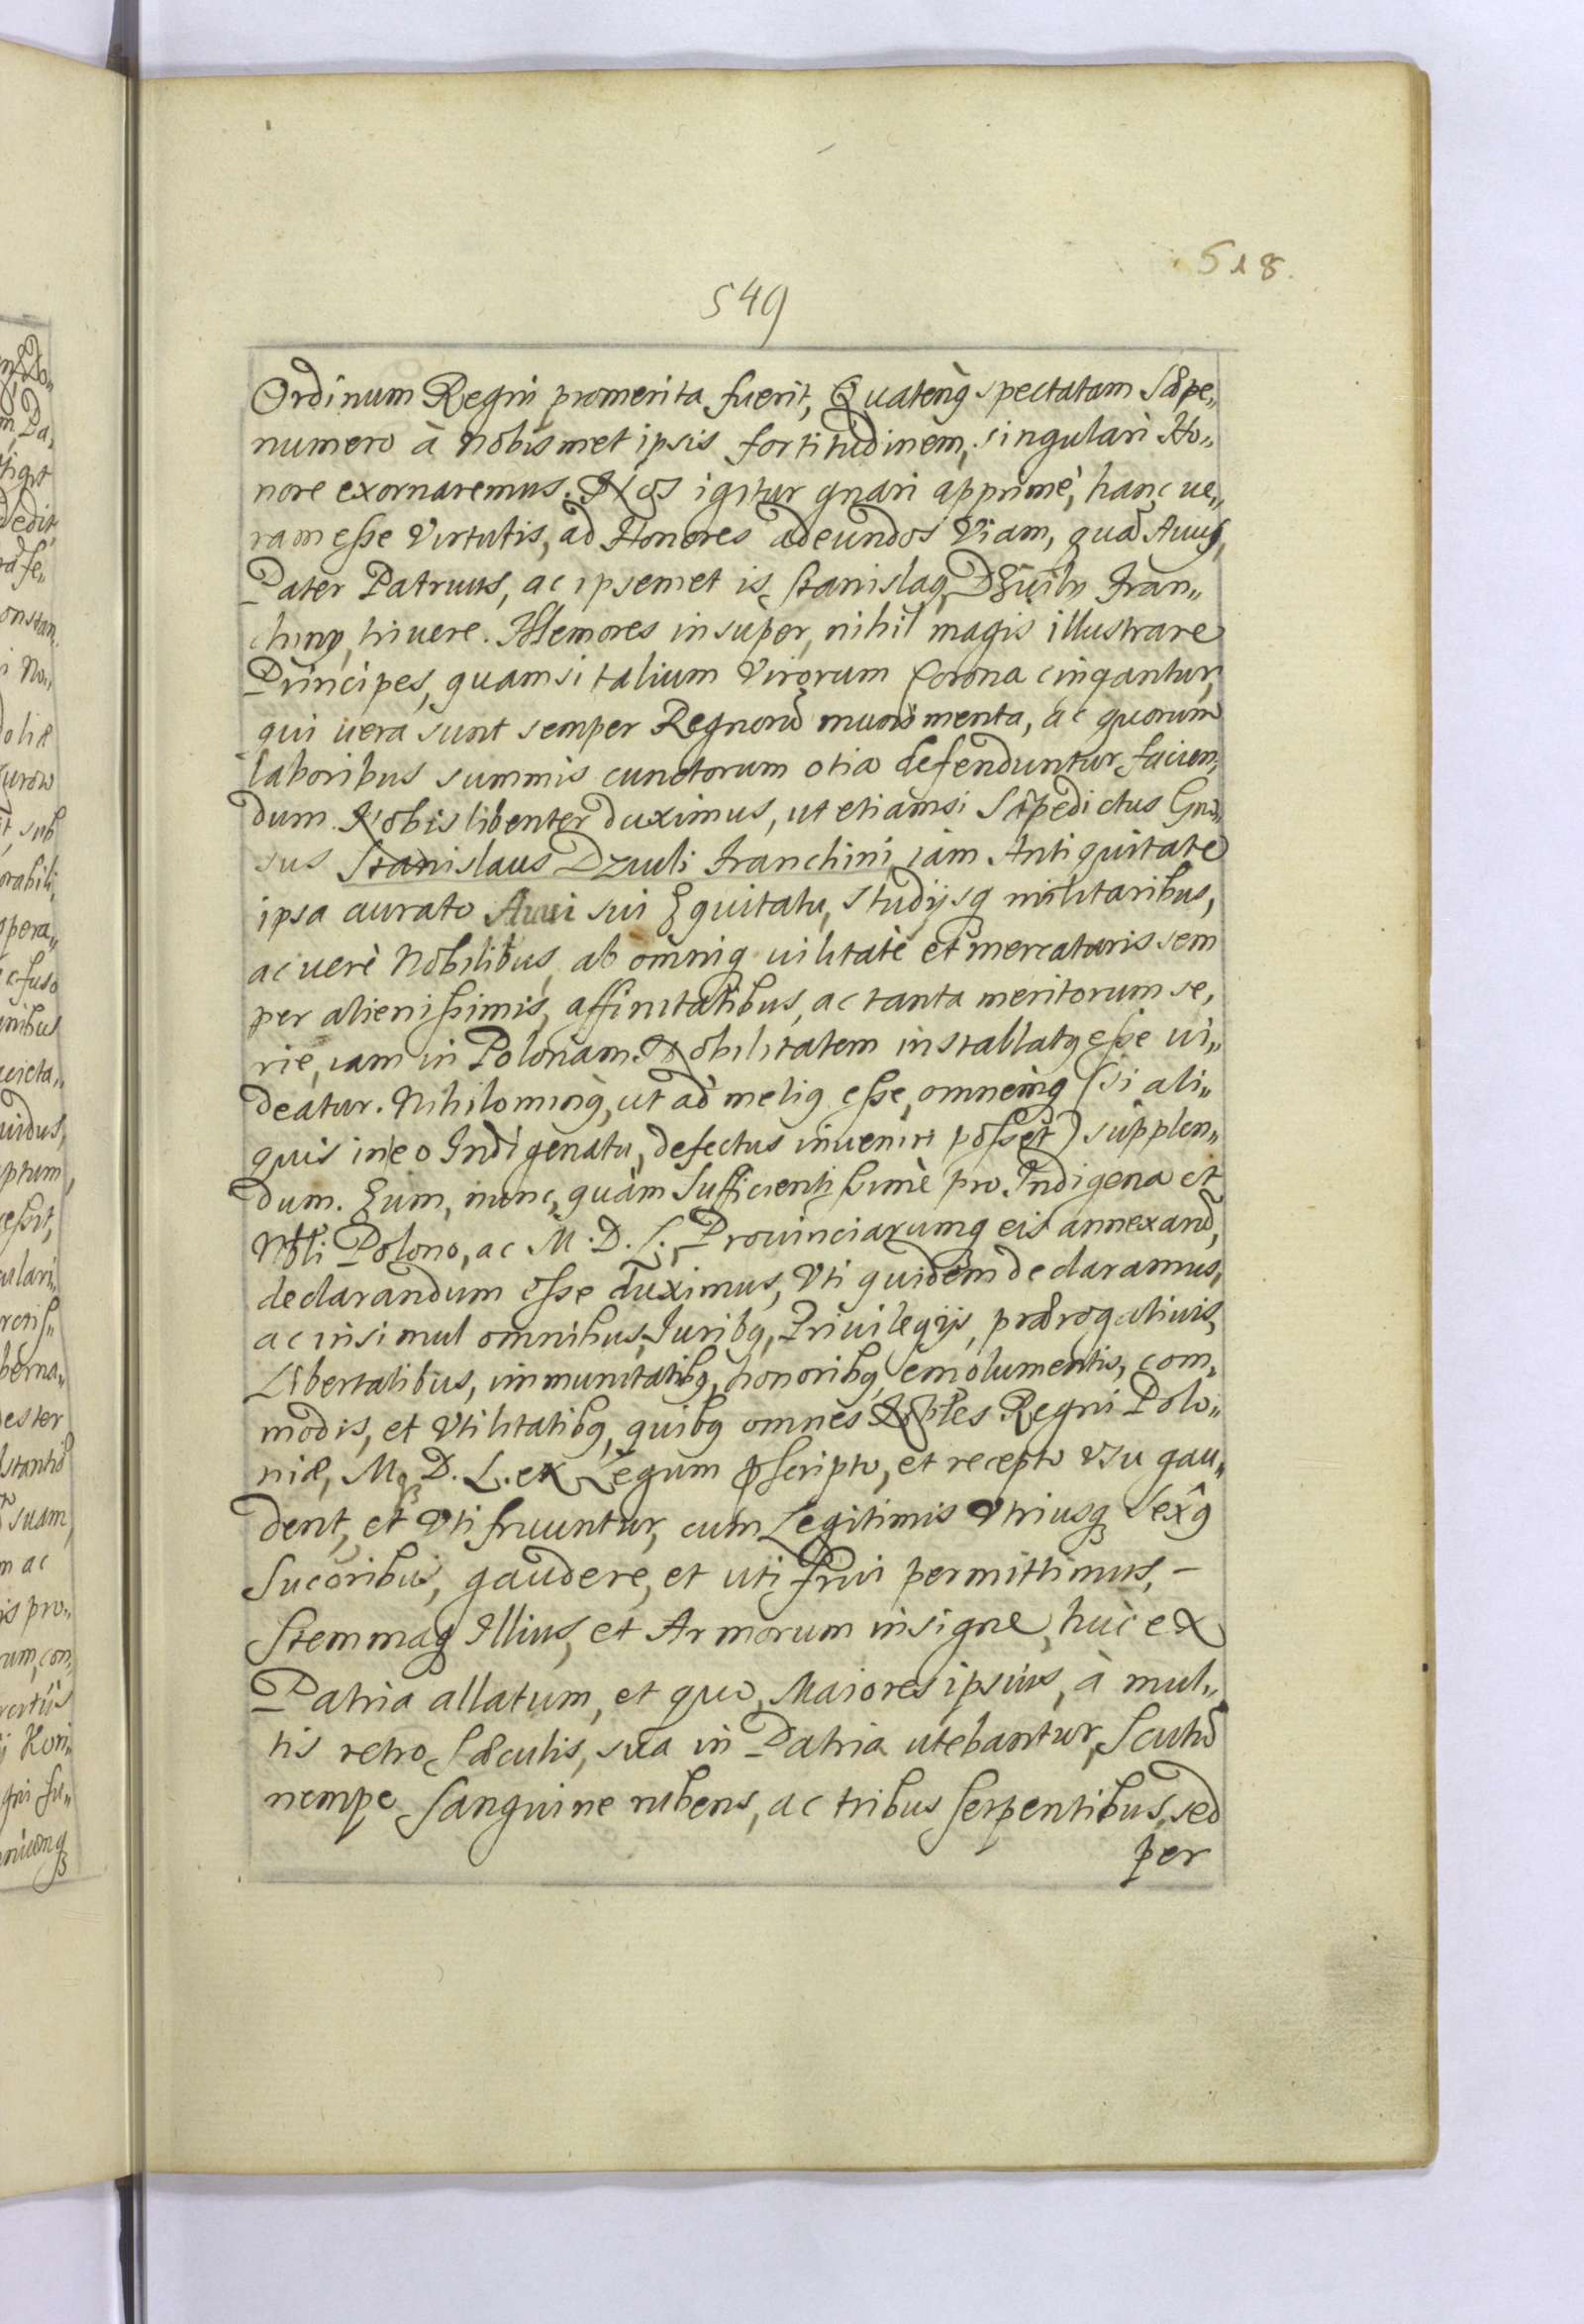 518.
549
Ordinum Regni promerita fuerit, Quatenꝯ spectatam Sæpe„
numero à nobismet ipsis fortitudinem, singulari Ho„
nore exornaremus. Nos igitur gnari apprimè, hanc ue„
ram esse Virtutis, ad Honores adeundos Viam, quā Auus,
Pater Patruus, ac ipsemet is Stanislaꝯ Dzuily Fran„
chiny, triuere. Memores insuper, nihil magis illustrare
Principes, quam si talium Virorum Corona cingantur,
qui uera sunt semper Regnorū munimenta, ac quorum
laboribus summis cunctorum otia defenduntur, facien„
dum Nobis libenter duximus, ut etiamsi Sæpedictus Gnō„
sus Stanislaus Dzuli Franchini, iàm Antiquitate
ipsa aurato Auui sui Equitatu, Studijsq militaribus,
ac uerè Nobilibus, ab omniq uilitate et mercaturis sem
per alienissimis, affinitatibus, ac tanta meritorum se„
rie, iam in Polonam Nobilitatem installatꝯ esse ui„
deatur. Nihilominꝯ, ut ad meliꝯ esse, omnemq (si ali„
quis in eo Indigenatu, defectus inueniri posset) supplen„
dum. Eum, nunc, quàm Sufficientissimè pro Indigena et
Nbli Polono, ac M. D. L., Prouinciarumq eis annexarū,
declarandum esse duximus, Vti quidem declaramus,
ac insimul omnibus, Juribꝯ, Priuilegijs, prærogatiuis,
Libertatibus, immunitatibꝯ, honoribꝯ, emolumentis, com„
modis, et Vtilitatibꝯ, quibꝯ omnes Nobles Regni Polo„
niæ, M. D. L. ex Legum p̱scripto, et recepto Vsu gau„
dent, et Vti fruuntur, cum Legitimis Vtriusq Sexꝯ
Sucoribus, gaudere, et uti frui permittimus, –
Stemmaq Illius, et Armorum insigne, huc ex
Patria allatum, et quo, Maiores ipsius, à mul„
tis retro Sæculis, sua in Patria utebantur, Scutū
nempe Sanguine rubens, ac tribus serpentibus, sed
per